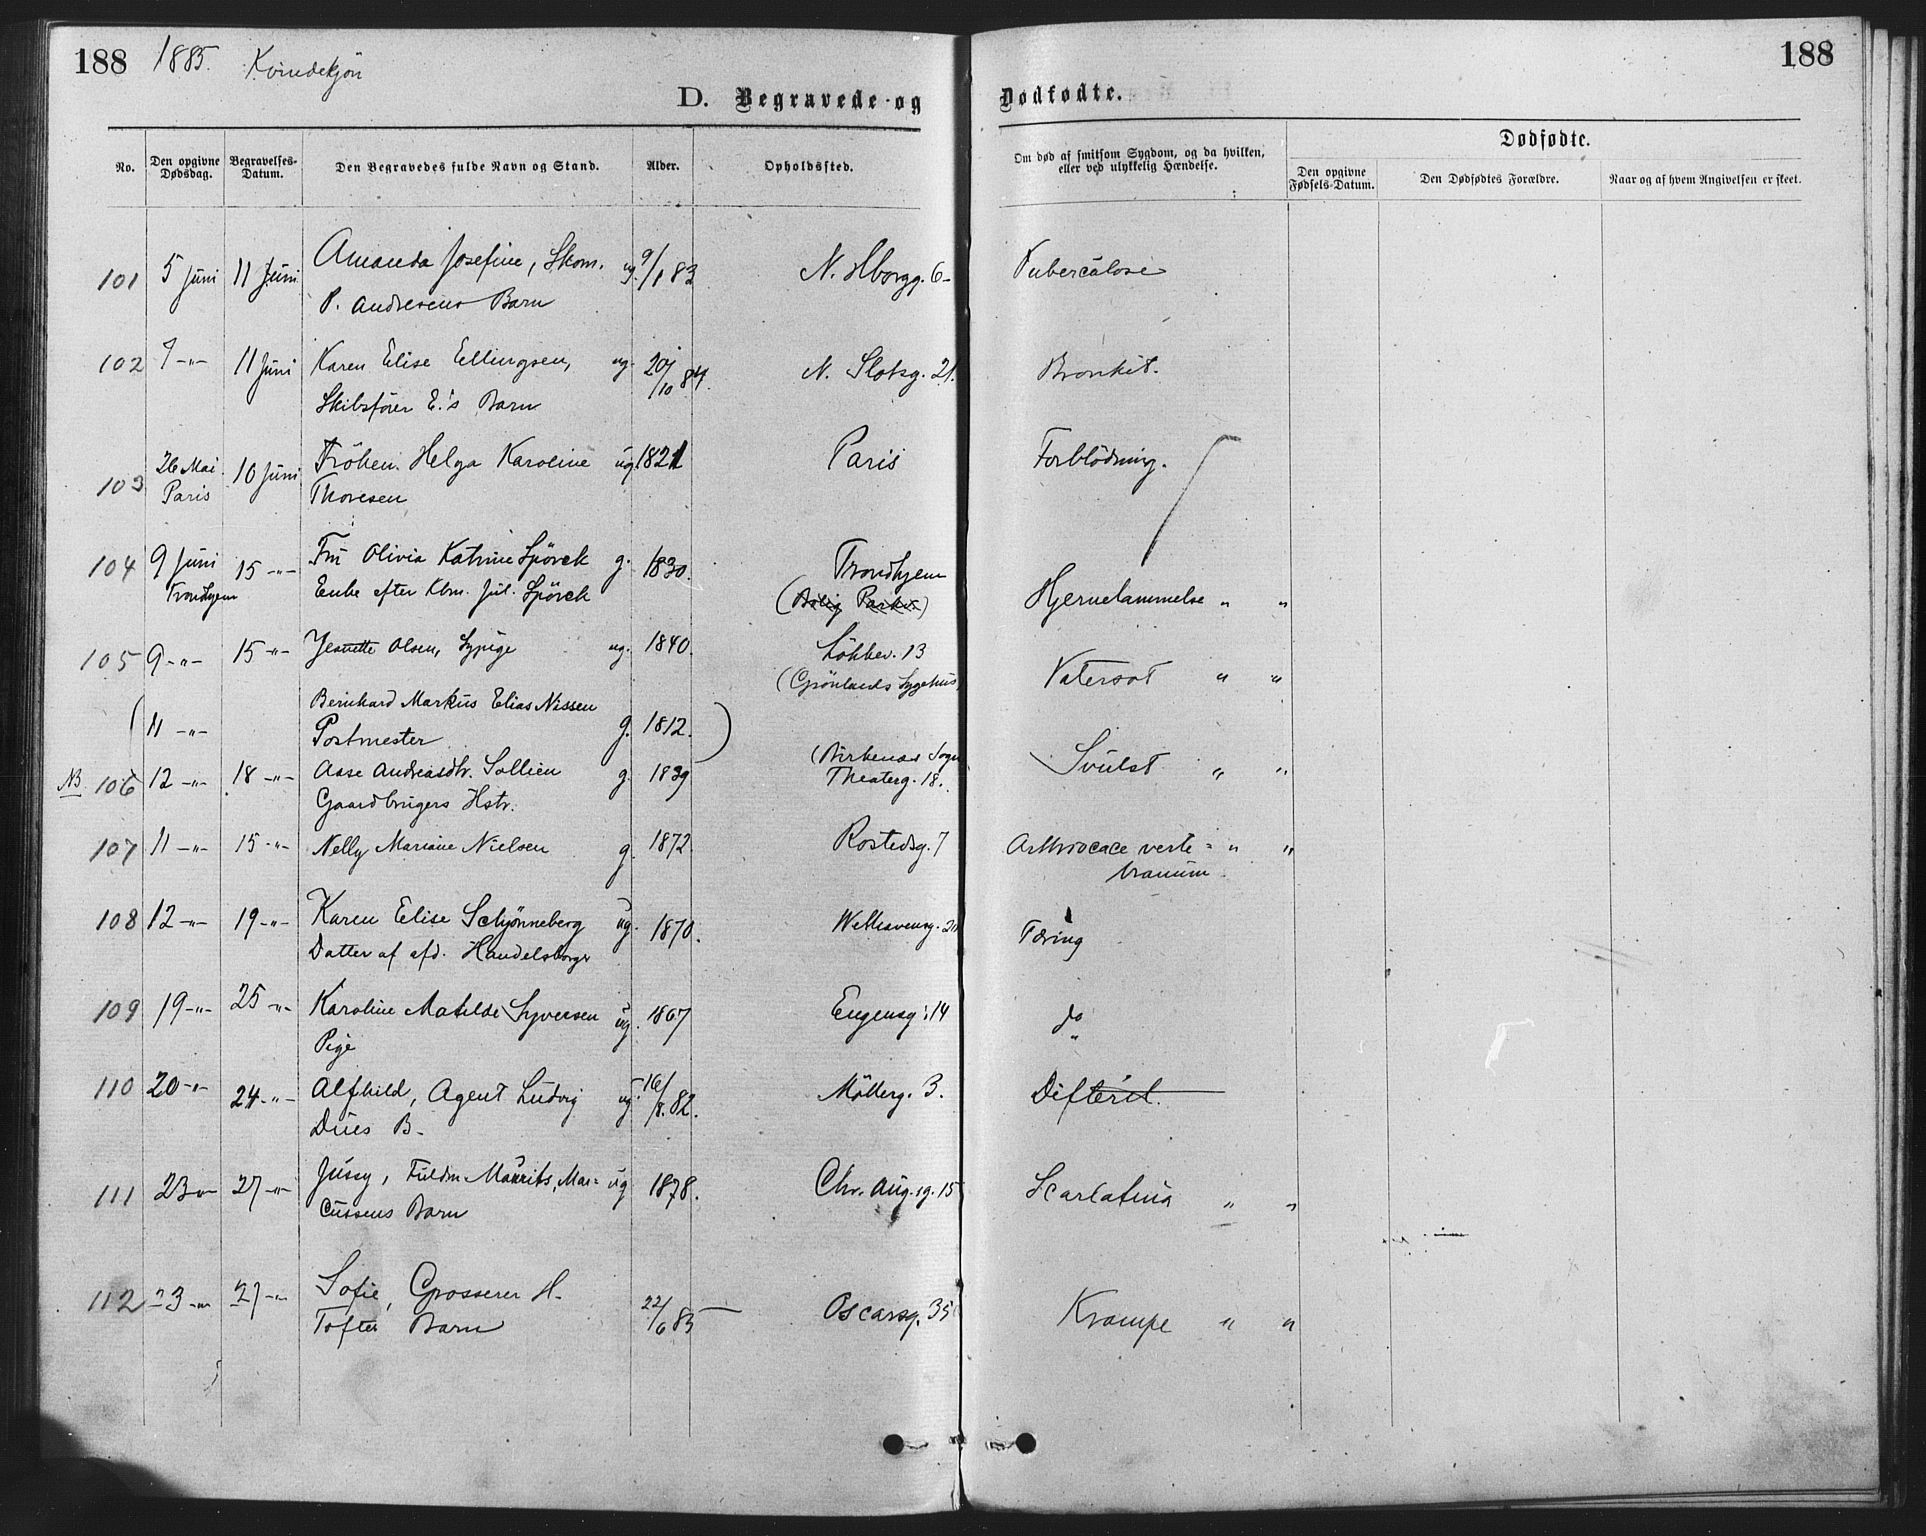 188 1885. Kvindekjön 188
D. Begravede og Dødfødte.
No. Den opgivne Dødsdag. Begravelses-Datum. Den Begravedes fulde Navn og Stand. Alder. Opholdssted. Om død af smitsom Sygdom, og da hvilken, eller ved ulykkelig Hændelse. Dødfødte.
Den opgivne Fødsels-Datum. Den Dødfødtes Forældre. Naar og af hvem Angivelsen er skeet.
101 5 Juni 11 Juni Amanda Josefine, Skom. ug. 9/1 83 N. 6 Tuberculose
P. Andresens Barn
102 7 -"- 11 Juni Karen Elise Ellingsen, ug. 20/10 84. N. Slotsg. 21. Bronkit.
Skibsfører E.'s Barn
103 26 Mai 10 Juni Fröken Helga Karoline ug. 1821 Paris Forblödning.
Paris Thoresen
104 9 Juni 15 -"- Fru Olivia Katrine Spörck g. 1830. Trondhjem
Trondhjem Enke efter Kbm. Jul. Spörck (Bolig) Hjernelammelse " "
105 9 -"- 15 -"- Jesnette Olsen, Sypige ug. 1840. Lökkev. 13
(Grönlands Sygehus) Vatersot " "
(11 -"- Bernhard Markus Elias Nissen
Postmester g. 1812.)
(Birkenæs Sogn
NB. 106 12 -"- 18 -"- Aase Andreasdtr. Sollien g. 1839 Theaterg. 18. Svulst " "
Gaardbrugers Hstr.
107 11 -"- 15 -"- Nelly Mariane Nielsen g. 1872. Rostedsg. 7 Arthrocace verte= " "
branum.
108 12 -"- 19 -"- Karen Elise Schjønneberg ug. 1870. Tæring
Datter af afd. Handelsborger
109 19 -"- 25 -"- Karoline Matilde Syversen ug. 1867 Eugensg. 14 do "
Pige
110 20 -"- 24 -"- Alfhild, Agent Ludvig ug. 16/8. 82. Möllerg. 3. Difterit.
Dües B.
111 23 -"- 27 -"- Jussy, Fuldm. Maurits, Mar= ug 1878. Chr. Aug. g. 15 Scarlatina " "
cussens Barn
112 23 -"- 27 -"- Sofie, Grosserer H. 22/6 85 Oscarsg. 35 Krampe " "
Toftes Barn